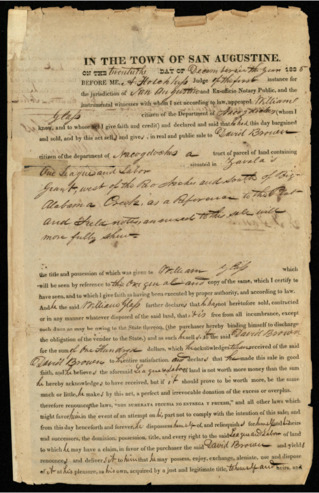 IN THE TOWN OF SAN AUGUSTINE.
ON THE twentieth DAY OF December in the year 183
BEFORE ME, Judge of the first instance for
the jurisdiction of San Augustine and Ex-officio Notary Public, and the
instrumental witnesses with whom I act according to law, appeared, William
citizen of the department of Nacogdoches, whom I
know, and to whom I give faith and credit; and declared and said that he had, this day bargained
and sold, and by this act sells and gives, in real and public sale to David Brown
citizen of the department of Nacogdoches a tract or parcel of land containing
One League and Labor situated in Zavala's
Grant west of the and South of Big
Alabama Creek, as a Reference to the
and field notes annexed to the sale will
more fully shew
the title and possession of which was given to William which
will be seen by reference to the original and copy of the same, which I certify to
have seen, and to which I give faith as having been executed by proper authority, and according to law.
And he the said William further declares that he has not heretofore sold, contracted
or in any manner whatever disposed of the said land, that it is free from all incumbrance, except
such dues as may be owing to the State thereon, (the purchaser hereby binding himself to discharge
the obligation of the vendor to the State,) and as such he sells it to the said David Brown
for the sum of Hundred dollars, which he acknowledges to have received of the said
David Brown to his entire satisfaction and avers that he made this sale in good
faith, and he believes the aforesaid League & labor of land is not worth more money than the sum
he hereby acknowledges to have received, but if it should prove to be worth more, be the same
much or little, he makes by this act, a perfect and irrevocable donation of the excess or overplus.
and all other laws which
might favor him in the event of an attempt on his part, not to comply with the intention of this sale, and
from this day henceforth and forever, he dispossesses himself of, and relinquishes for himself his heirs
and successors, the dominion, possession, title, and every right to the said League & labor of land
to which he may have a claim, in favor of the purchaser the said David Brown and yields
renounces, and delivers it to him that he may possess, enjoy, exchange, sell, alienate, and dispose
of it at his pleasure, as his own, acquired by a just and legitimate title,